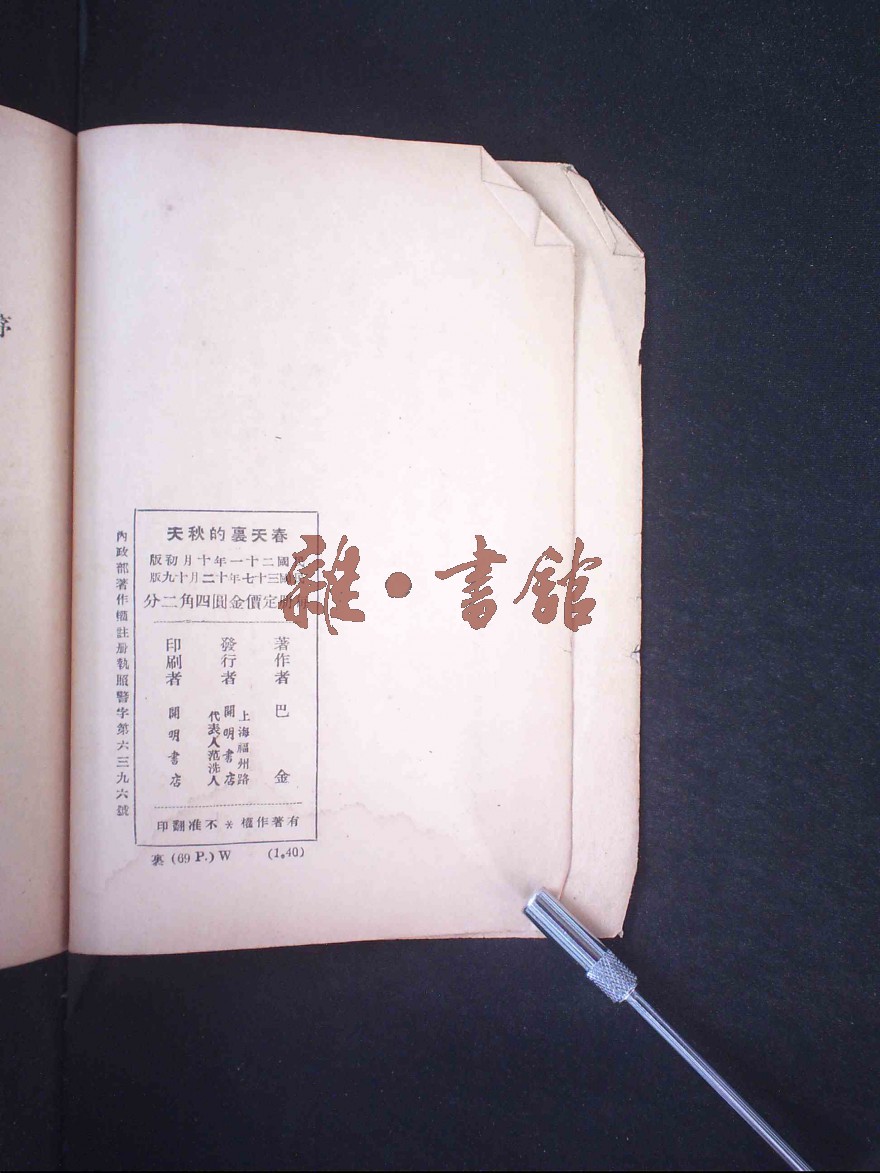 春天裏的秋天
國二十一年十月初版
國三十七年十二月十九版
定價金圓四角二分
著作者 巴金
發行者 上海福州路
開明書店
代表人范洗人
印刷者 開明書店
有著作權*不准翻印
內政部著作權註册執照警字第六三九六號
裏 (69 P.) W (1.40)
雜·書館